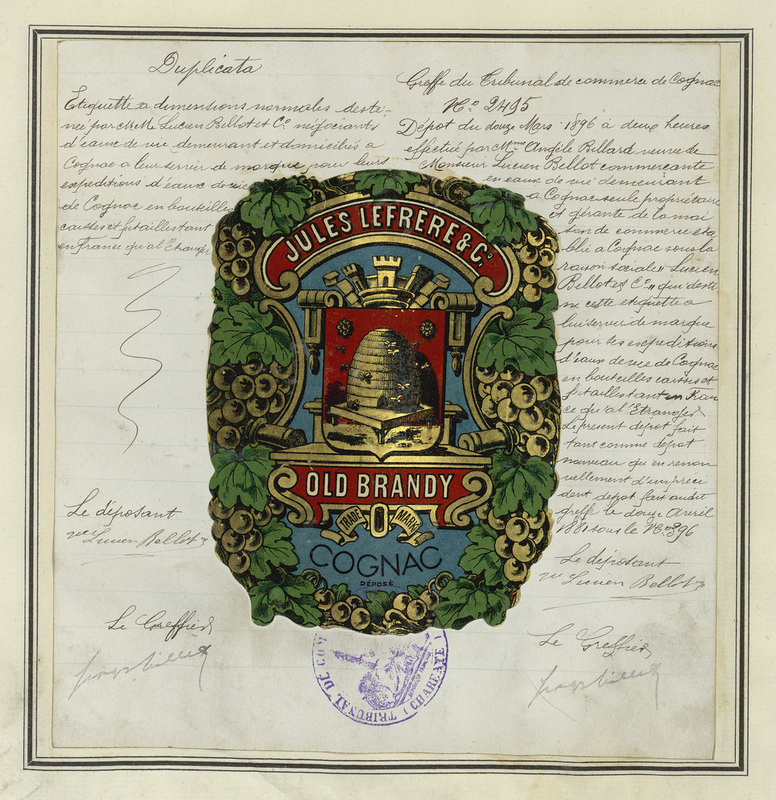 Duplicata
Etiquette a dimensions normales desti-
née par M.M. Lucien Bellot et Cie négociants
d'eaux de vie demeurant et domiciliés à
Cognac a leur servir de marque pour leurs
expéditions d'eaux de vie
de Cognac en bouteilles
caisses et futailles tant
en France qu'al'Etranger
Le déposant
Vve Lucien Bellot
Le Greffier
Greffe du Tribunal de commerce de Cognac
No 2495
Dépot du douze Mars 1896 à deux heures
effectué par Mme Angèle Billard veuve de
Monsieur Lucien Bellot commerçante
en eaux de vie demeurant
a Cognac seule propriétaire
et gérante de la mai
son de commerce éta
blie a Cognac sous la
raison sociale "Lucien
Bellot et Cie" qui desti
ne cette etiquette a
lui servir de marque
pour les expéditions
d'eaux de vie de Cognac
en bouteilles caisses et
futailles tant en Fran
ce qu'al'Etranger
Le présent dépot fait
tant comme dépot
nouveau qu'en renou
vellement d'un précé
dent dépot fait audit
greffe le douze Avril
1881 sous le No 396
Le déposant
Vve Lucien Bellot
Le Greffier
JULES LEFRÈRE & Co.
OLD BRANDY
TRADE MARK
COGNAC
DÉPOSÉ
TRIBUNAL DE COM
(CHARENTE)